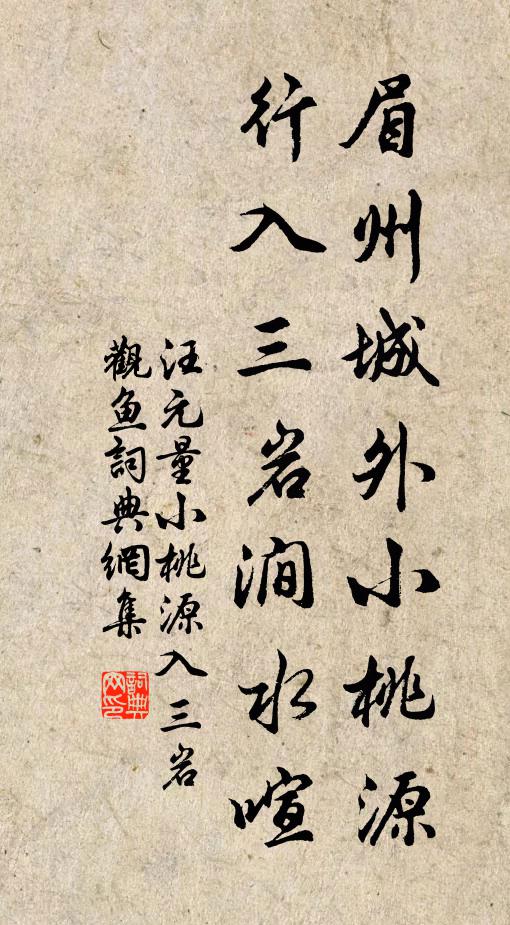 眉州城外小桃源
行入三岩澗水喧
汪元量小桃源入三岩
觀鱼詞典網集
詞典網印